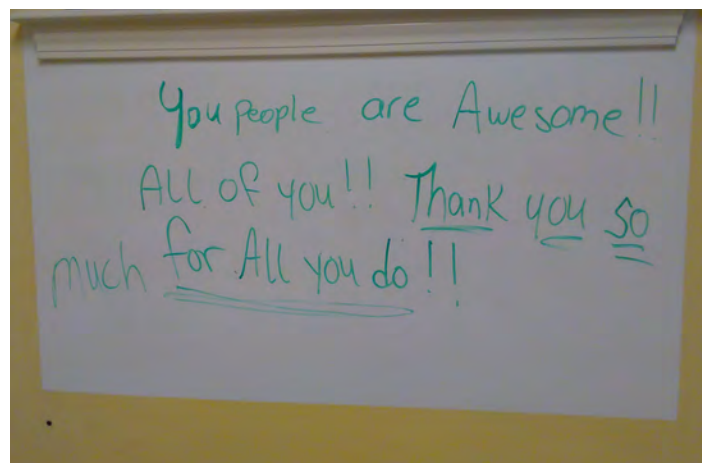 You people are Awesome!!
All of you!! Thank you so
much for All you do!!